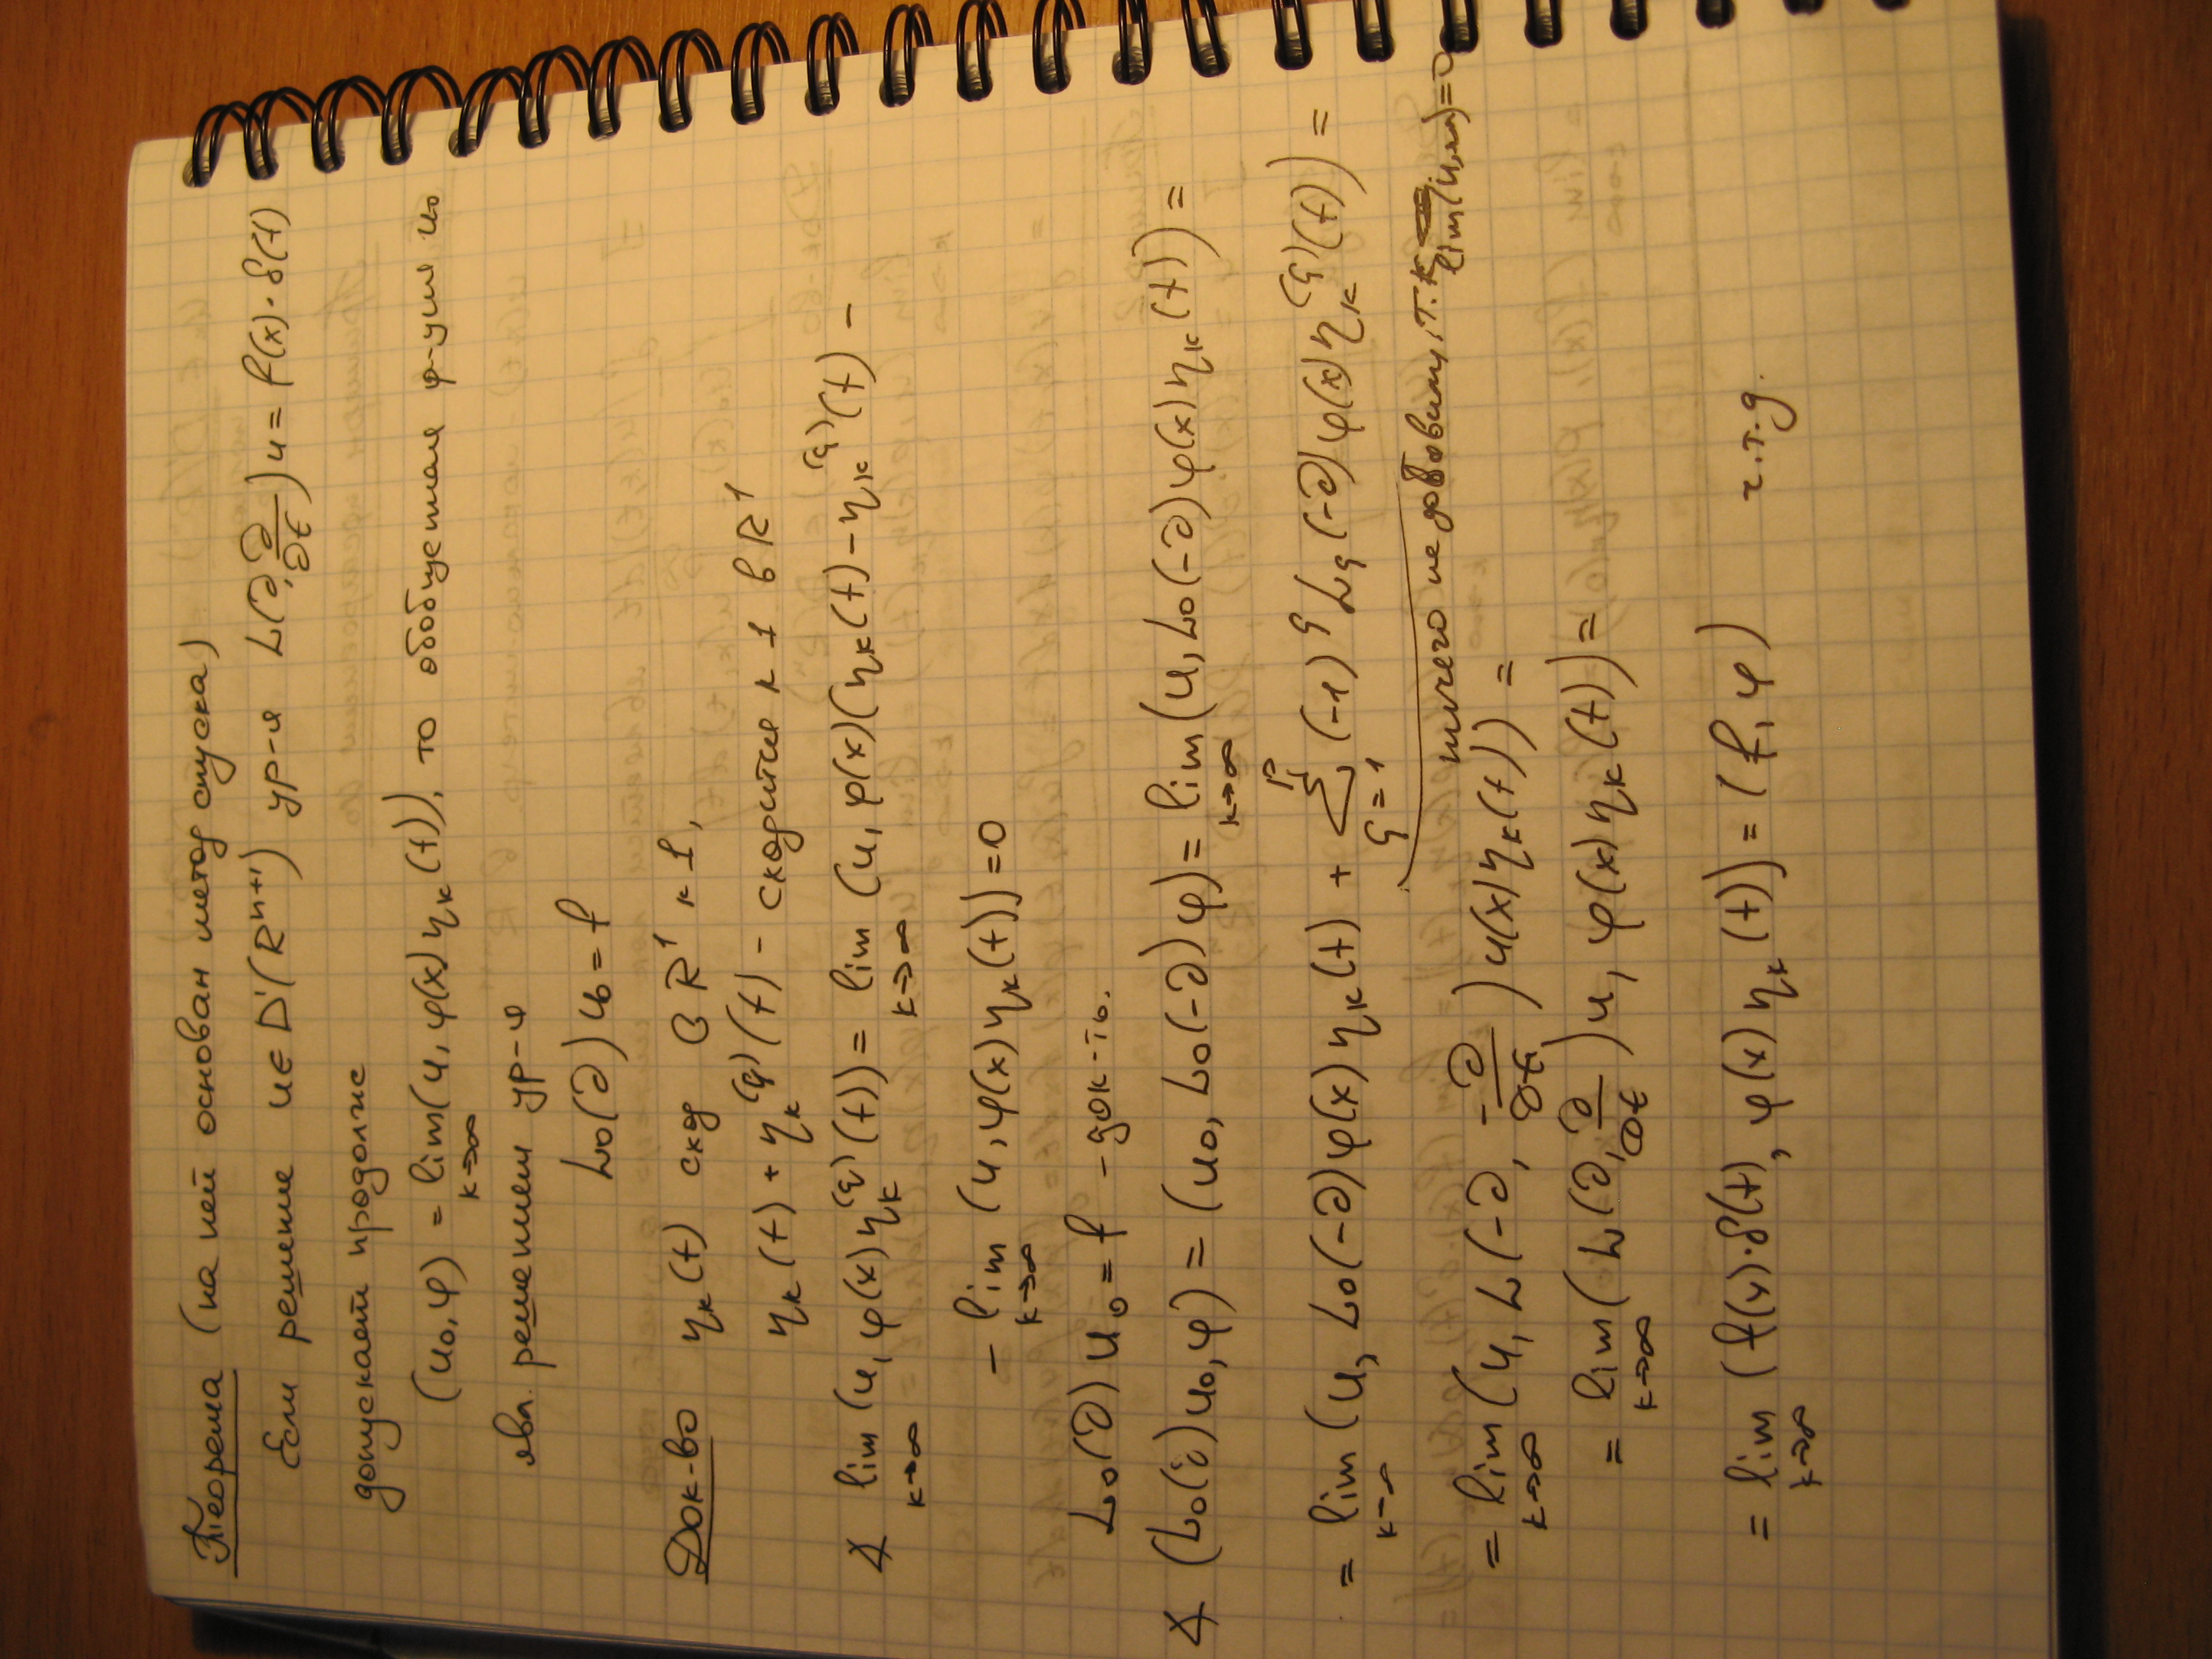 Теорема (на ней основан метод спуска)
Если решение u∈D'(R^{n+1}) ур-я L(∂, ∂/∂t)u = f(x)·δ(t)
допускает продолже
(u₀, φ) = lim_{k→∞}(u, φ(x)η_k(t)), то обобщенная ф-ция u₀
явл. решением ур-я
L₀(∂)u₀ = f
Док-во η_k(t) сход в R¹ к 1,
η_k(t) + η_k^{(q)}(t) - сходится к 1 в R¹
∢ lim_{k→∞}(u, φ(x)η_k^{(q)}(t)) = lim_{k→∞}(u, φ(x)(η_k(t) − η_k^{(q)}(t) −
− lim_{k→∞}(u, φ(x)η_k(t)) = 0
L₀(∂)u₀ = f - док-ть.
∢ (L₀(∂)u₀, φ) = (u₀, L₀(−∂)φ) = lim_{k→∞}(u, L₀(−∂)φ(x)η_k(t)) =
= lim_{k→∞}(u, L₀(−∂)φ(x)η_k(t) + ∑_{q=1}^{p}(−1)^q L_q(−∂)φ(x)η_k^{(q)}(t)) =
ничего не добавим, т.к. lim(u, ...) = 0
= lim_{k→∞}(u, L(−∂, −∂/∂t)φ(x)η_k(t)) =
= lim_{k→∞}(L(∂, ∂/∂t)u, φ(x)η_k(t)) =
= lim_{k→∞}(f(x)·δ(t), φ(x)η_k(t)) = (f, φ) ч.т.д.